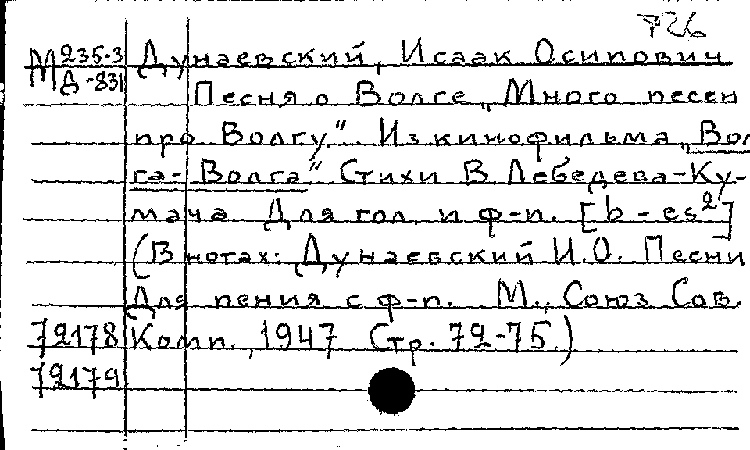 726
М 235-3 Дунаевский, Исаак Осипович
Д-831 Песня о Волге „Много песен
про Волгу“. Из кинофильма „Вол
га-Волга“ Стихи В. Лебедева-Ку-
мача Для гол. и ф-п. [b - es²]
(В нотах: Дунаевский И.О. Песни
Для пения с ф-п. М., Союз Сов.
72178 Комп., 1947 Стр. 72-75.)
72179